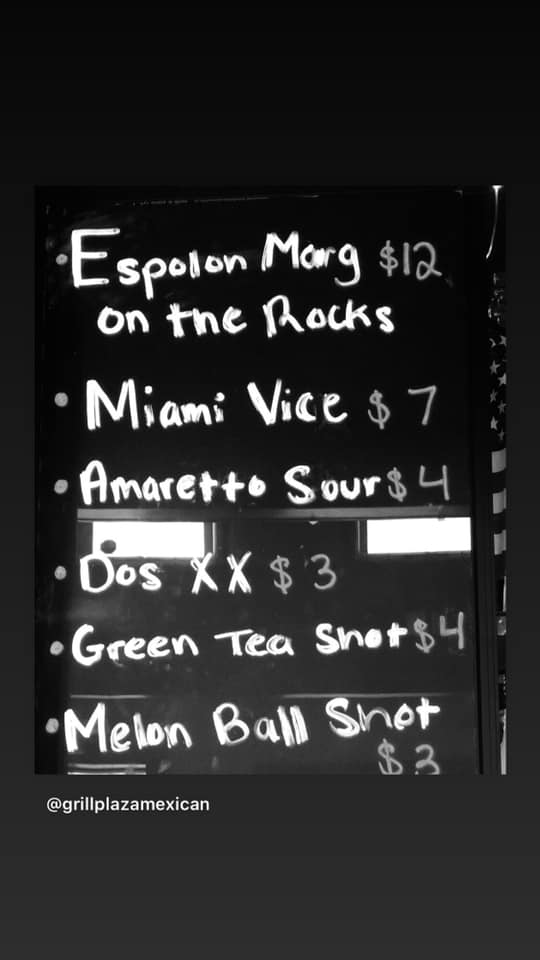 • Espolon Marg $12
on the Rocks
• Miami Vice $7
• Amaretto Sour $4
• Dos XX $3
• Green Tea Shot $4
• Melon Ball Shot
$3
@grillplazamexican